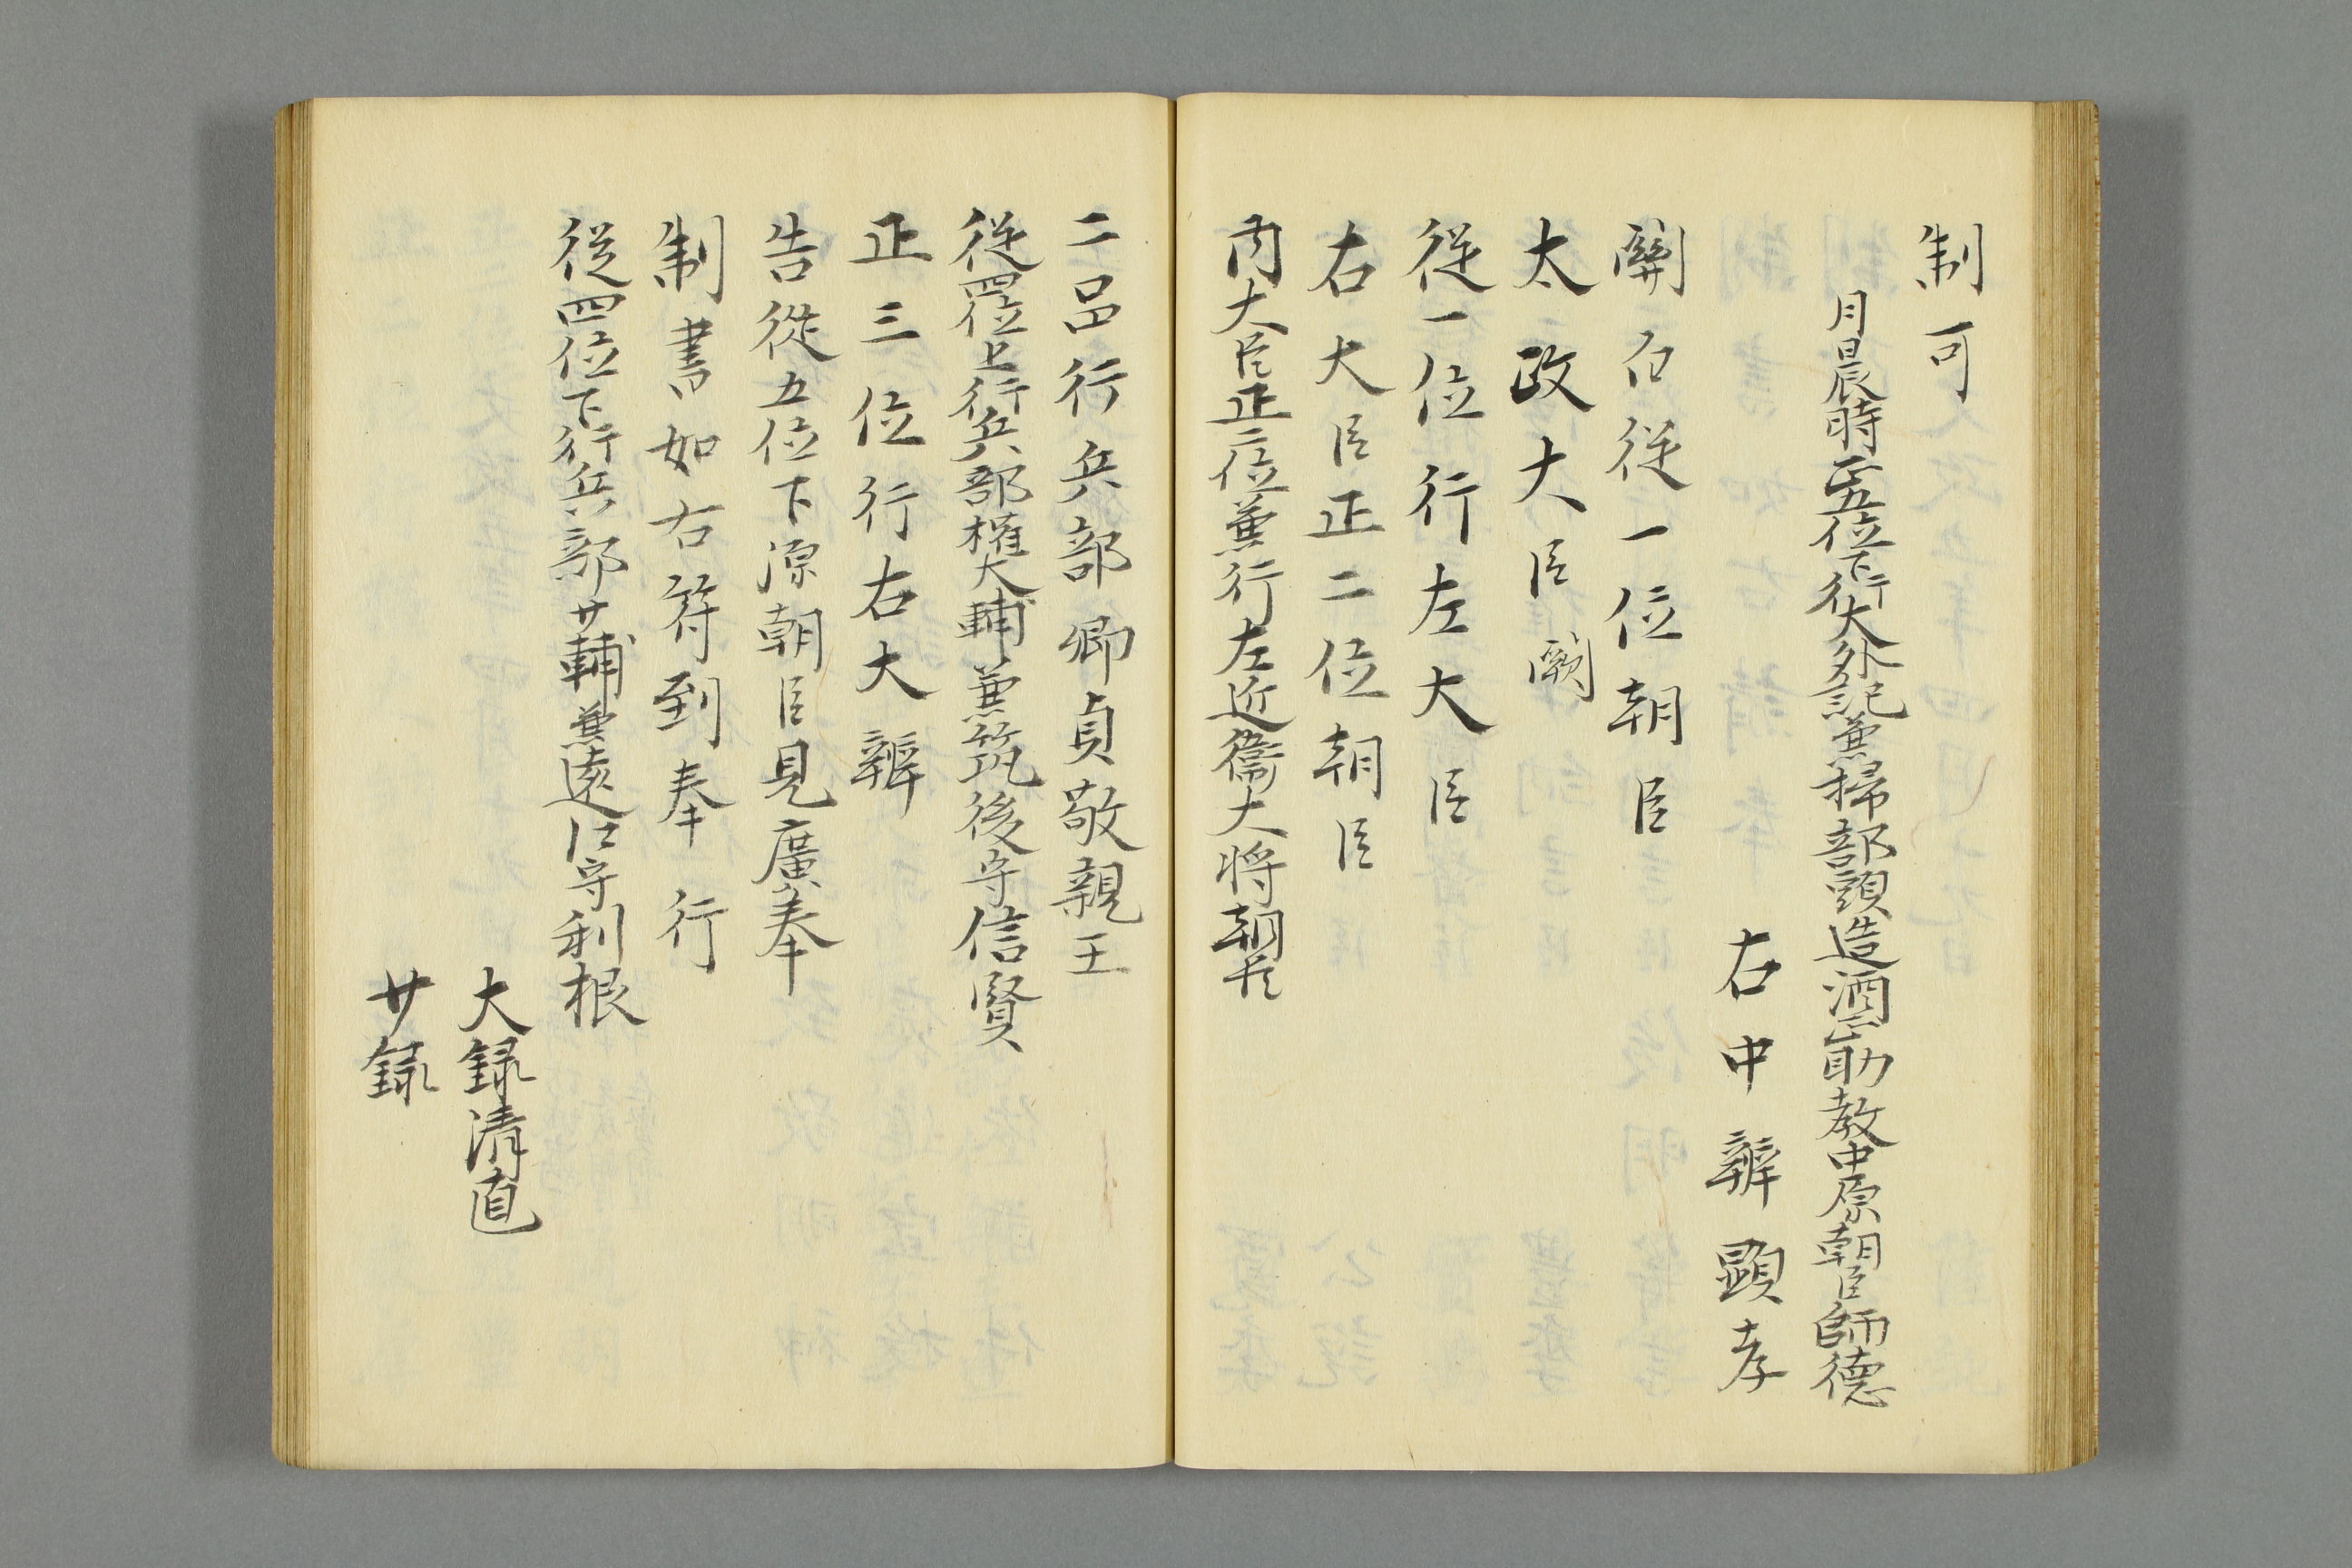 制可
月日辰時正五位下行大外記兼掃部頭造酒正助教中原朝臣師徳
右中辨顕孝
關白従一位朝臣
太政大臣闕
従一位行左大臣
右大臣正二位朝臣
内大臣正二位兼行左近衞大将朝臣
二品行兵部卿貞敬親王
従四位上行兵部権大輔兼筑後守信賢
正三位行右大辨
告従五位下源朝臣見廣奉
制書如右符到奉行
従四位下行兵部少輔兼遠江守利根
大録清直
少録